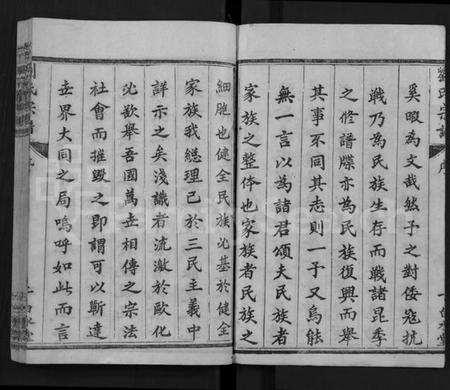 奚暇為文哉然予之對倭寇抗
戰乃為民族生存而戰諸昆季
之修譜牒亦為民族復興而舉
其事不同其志則一予又烏能
無一言以為諸君頌夫民族者
家族之整体也家族者民族之
細胞也健全民族必基於健全
家族我總理已於三民主義中
詳示之矣淺識者流激於歐化
必欲舉吾國萬世相傳之宗法
社會而摧毀之即謂可以蘄達
世界大同之局嗚呼如此而言